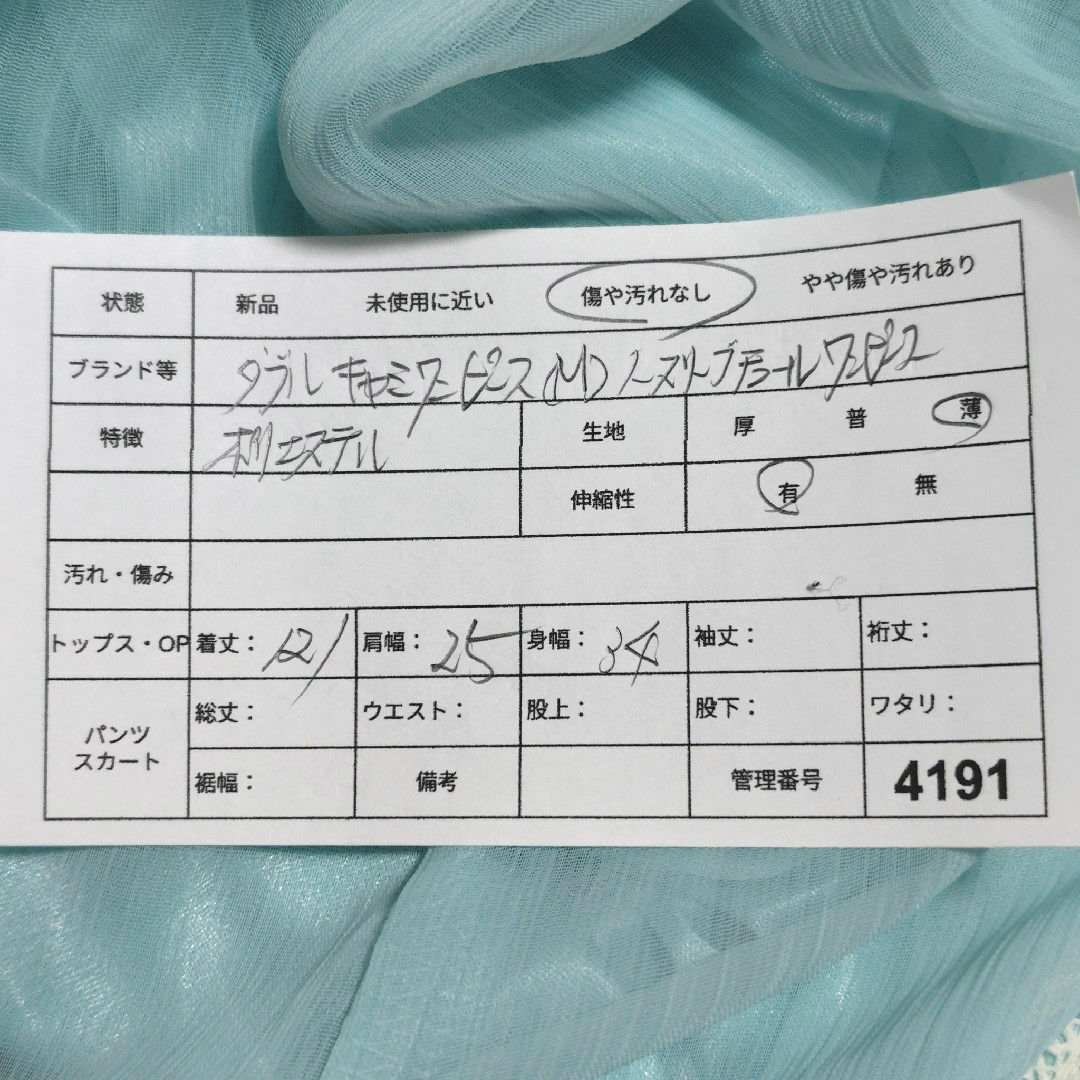 状態 新品 未使用に近い 傷や汚れなし やや傷や汚れあり
ブランド等 ダブルキャミワンピース(M) ノースリーブチュールワンピース
特徴 ポリエステル 生地 厚 普 薄
伸縮性 有 無
汚れ・傷み
トップス・OP 着丈: 121 肩幅: 25 身幅: 34 袖丈: 裄丈:
パンツ 総丈: ウエスト: 股上: 股下: ワタリ:
スカート
裾幅: 備考 管理番号 4191